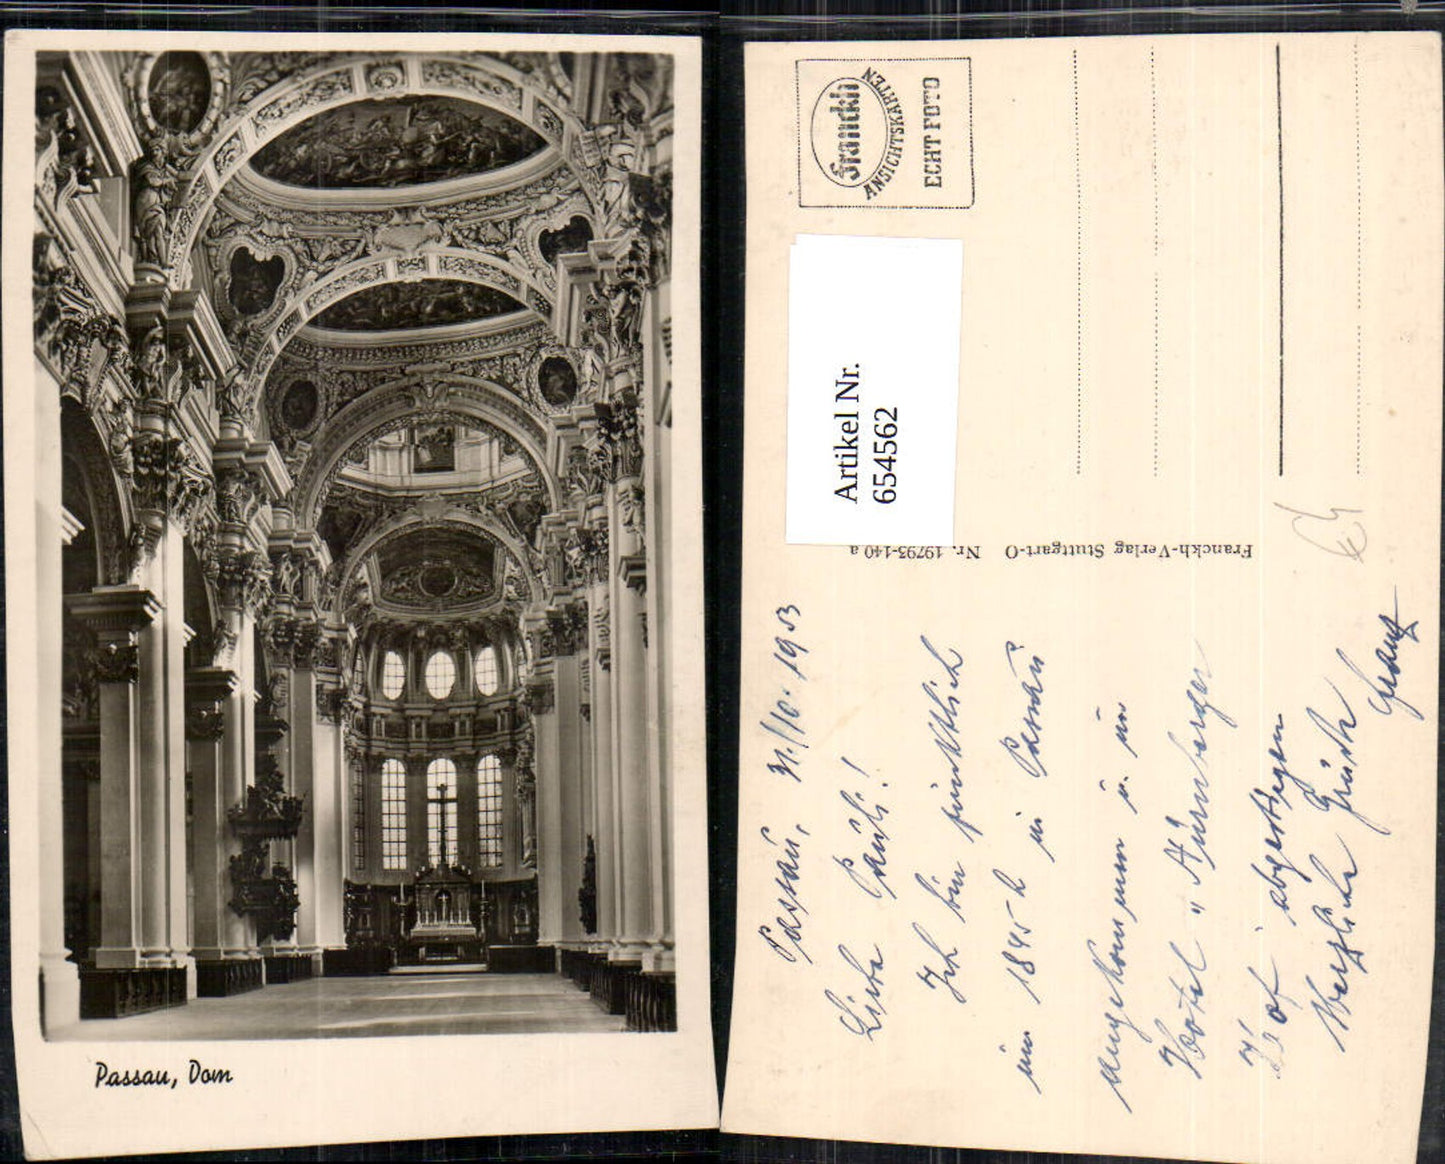 Passau, Dom
Franckh
ANSICHTSKARTEN
ECHT FOTO
Artikel Nr.
654562
Franckh-Verlag Stuttgart-O Nr. 19793-140 a
Passau, 31./10. 1953
Liebe Pauli!
Ich bin pünktlich
um 1845 h in Passau
angekommen u. im
Hotel „Nürnberger
Hof" abgestiegen
Herzliche Grüße
Franz